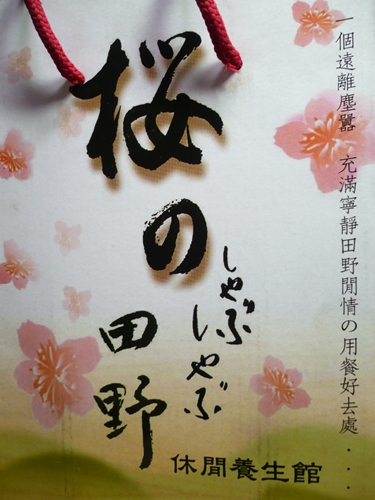 一個遠離塵囂 充滿寧靜田野閒情の用餐好去處...
桜の
田野
しゃぶしゃぶ
休閒養生館